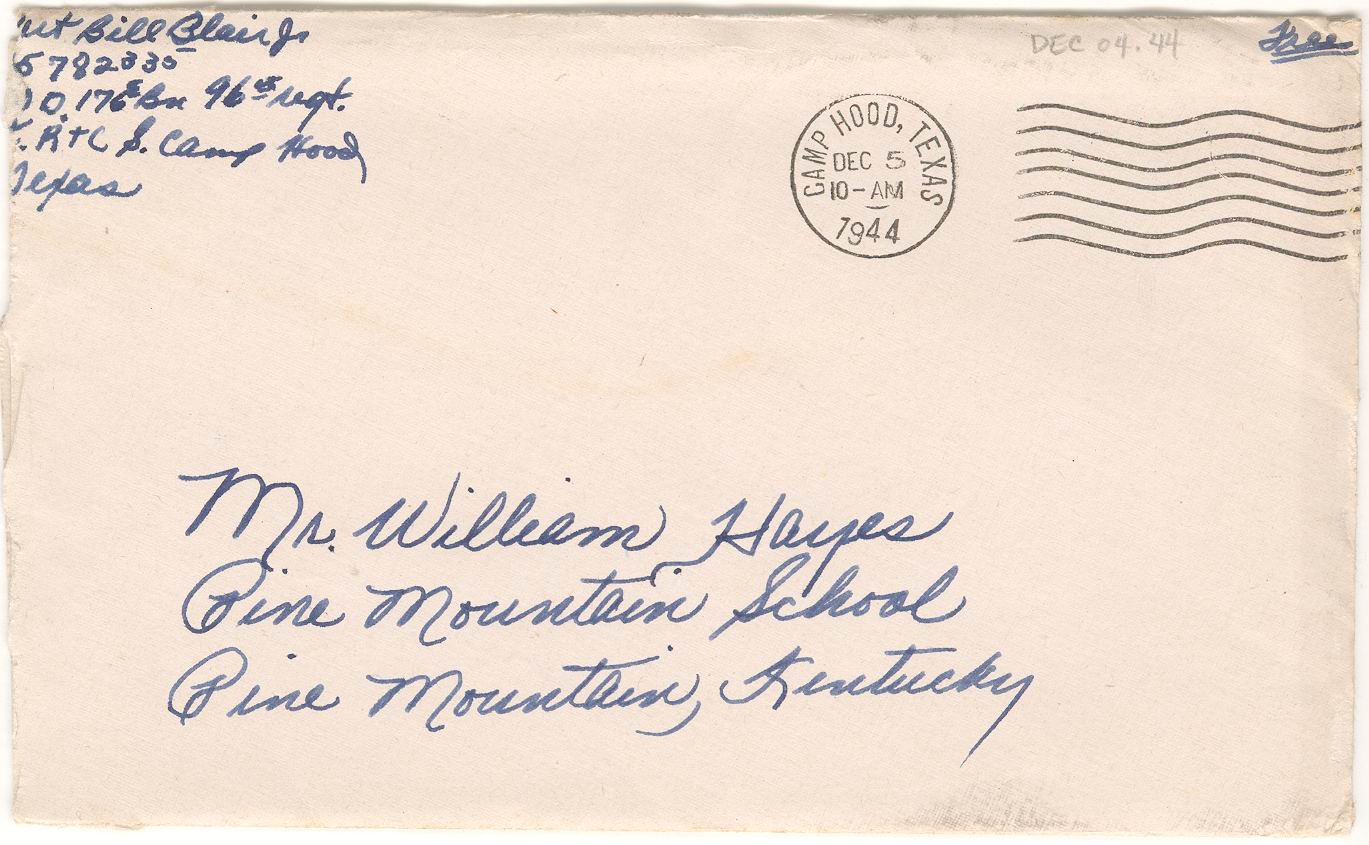 Bill Blair Jr
5782335
O. 176 Bn 96th regt.
R T C S. Camp Hood
Texas
DEC 04.44
Free
CAMP HOOD, TEXAS
DEC 5
10-AM
1944
Mr. William Hayes
Pine Mountain School
Pine Mountain, Kentucky